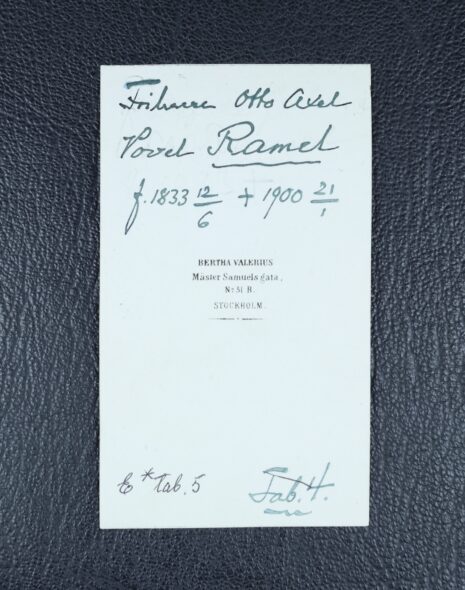 Friherre Otto Axel
Povel Ramel
f. 1833 12/6 + 1900 21/1
BERTHA VALERIUS
Mäster Samuels gata,
No 51 B.
STOCKHOLM.
E * Tab. 5
Tab. 4.